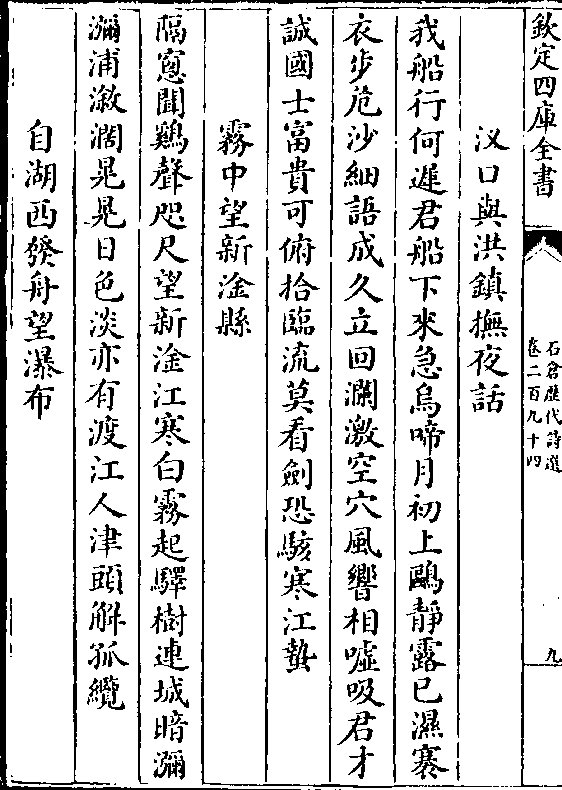 欽定四庫全書
石倉歷代詩選
卷二百九十四
九
汊口與洪鎮撫夜話
我船行何遲君船下來急烏啼月初上鷗靜露已濕褰
衣步危沙細語成久立回瀾激空穴風響相噓吸君才
誠國士富貴可俯拾臨流莫看劍恐駭寒江蟄
霧中望新淦縣
隔窻聞鷄聲咫尺望新淦江寒白霧起驛樹連城暗瀰
瀰浦溆濶晃晃日色淡亦有渡江人津頭解孤纜
自湖西發舟望瀑布